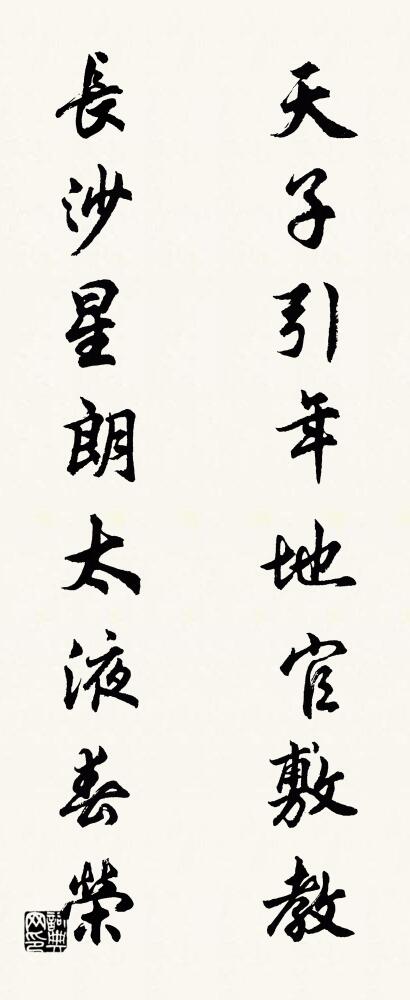 天子引年地官敷教
長沙星朗太液春榮